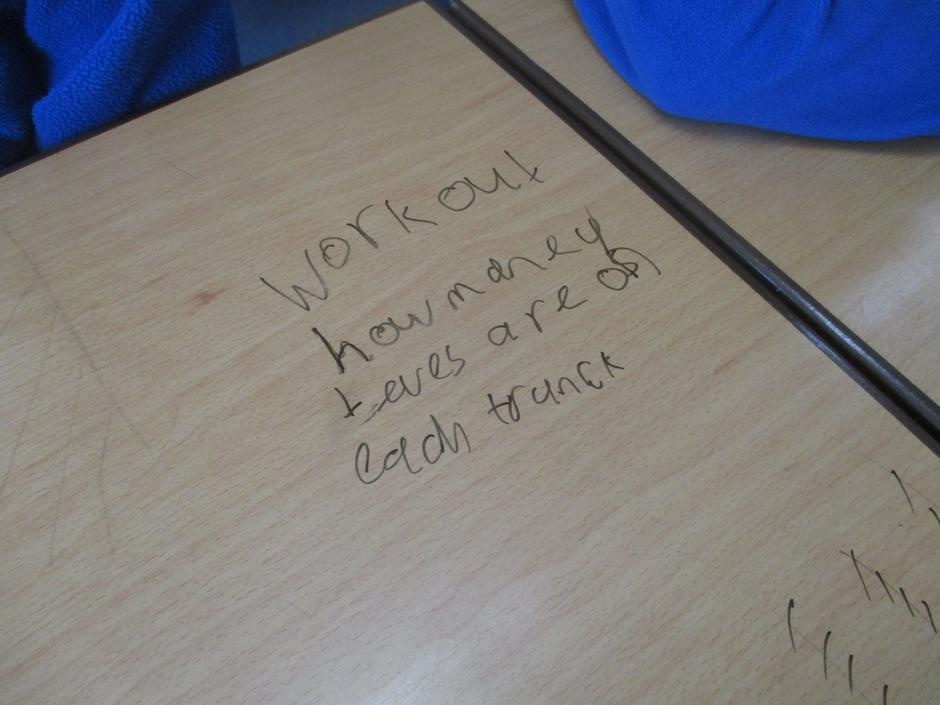 work out
how maney
leves are on
each trunck